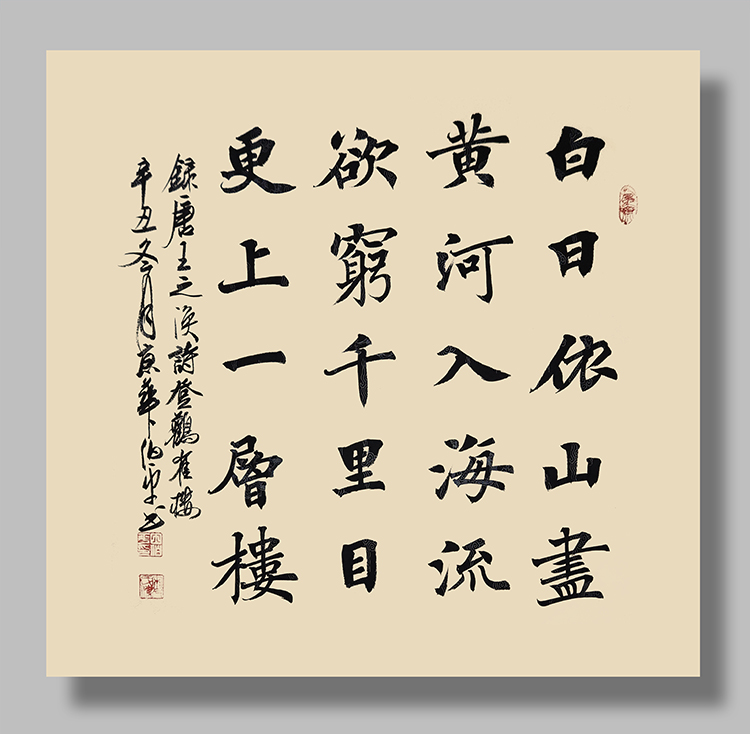 白日依山盡
黄河入海流
欲窮千里目
更上一層樓
録唐王之渙詩登鸛雀樓
辛丑冬月京華卜伯平书